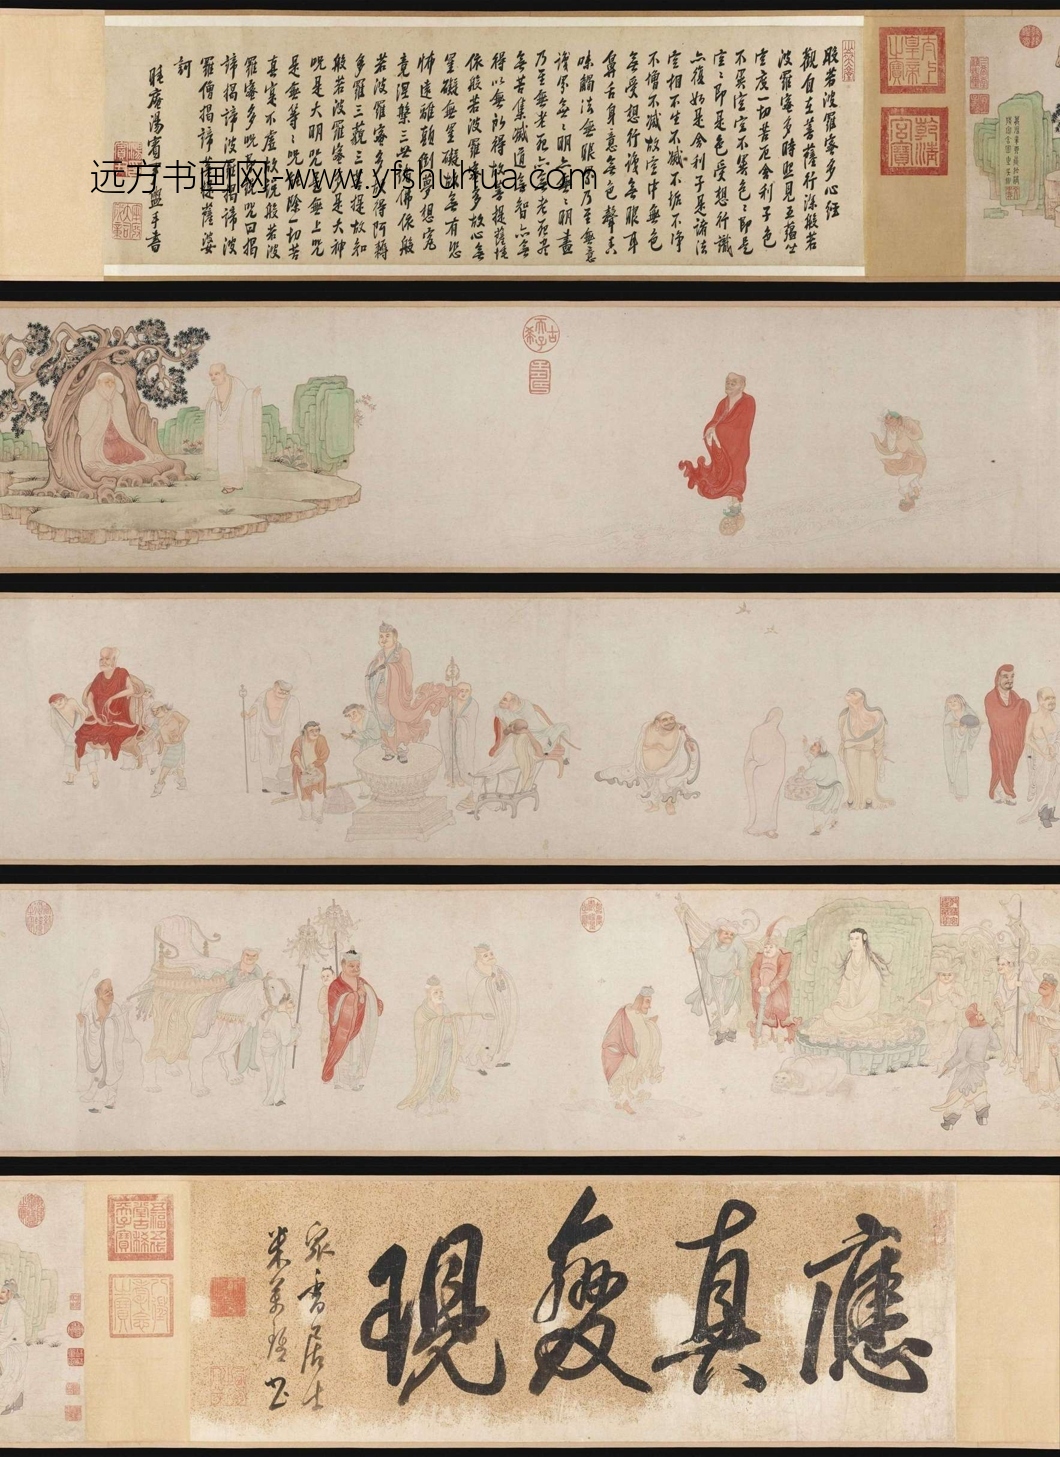 般若波羅蜜多心經
觀自在菩薩行深般若
波羅蜜多時照見五蘊皆
空度一切苦厄舍利子色
不異空空不異色色即是
空空即是色受想行識
亦復如是舍利子是諸法
空相不生不滅不垢不淨
不增不減是故空中無色
無受想行識無眼耳
鼻舌身意無色聲香
味觸法無眼界乃至無意
識界無無明亦無無明盡
乃至無老死亦無老死盡
無苦集滅道無智亦無
得以無所得故菩提薩埵
依般若波羅蜜多故心無
罣礙無罣礙故無有恐
怖遠離顛倒夢想究
竟涅槃三世諸佛依般
若波羅蜜多故得阿耨
多羅三藐三菩提故知
般若波羅蜜多是大神
咒是大明咒是無上咒
是無等等咒能除一切苦
真實不虛故說般若波
羅蜜多咒即說咒曰揭
諦揭諦波羅揭諦波
羅僧揭諦菩提薩婆
訶
睡庵湯賓尹盥手書
远方书画网-www.yfshuhua.com
應真變現
米萬鍾書